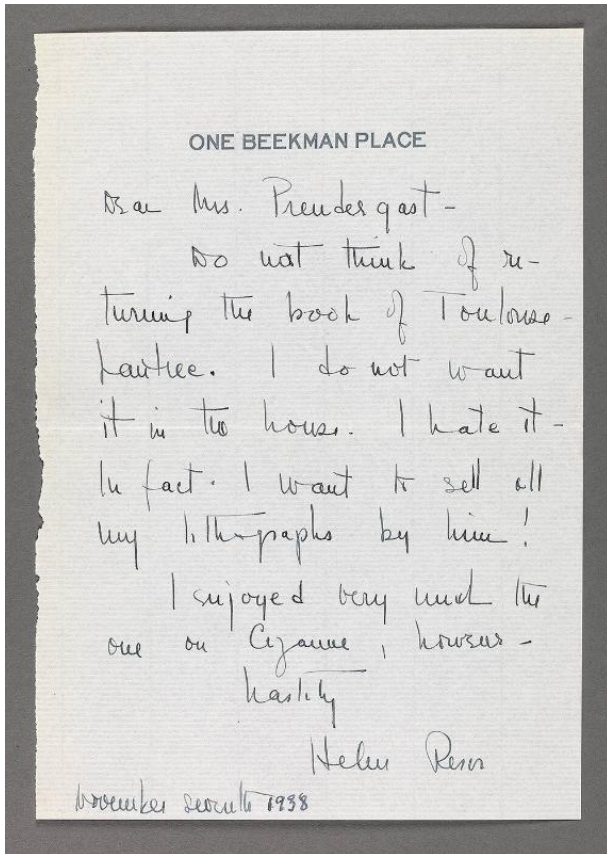 ONE BEEKMAN PLACE
Dear Mrs. Prendergast -
Do not think of re-
turning the book of Toulouse-
Lautrec. I do not want
it in the house. I hate it -
In fact. I want to sell all
my lithographs by him!
I enjoyed very much the
one on Cézanne, however -
hastily
Helen Resor
November seventh 1938